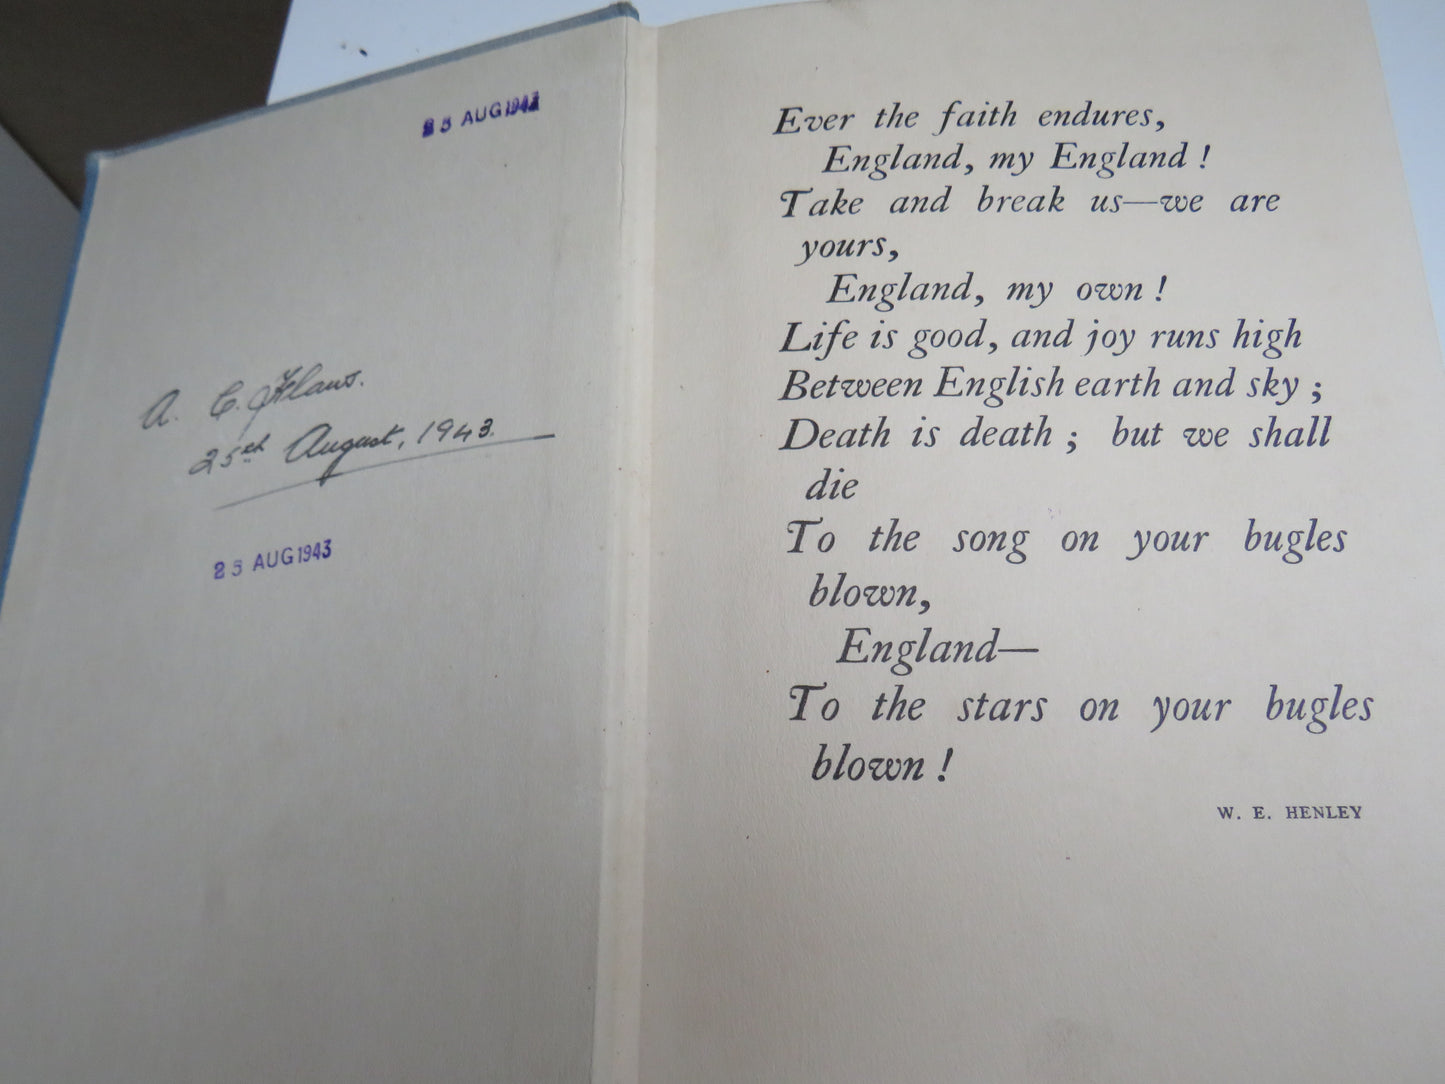 25 AUG 1943
A. C.
25th August, 1943.
25 AUG 1943
Ever the faith endures,
England, my England !
Take and break us—we are
yours,
England, my own !
Life is good, and joy runs high
Between English earth and sky ;
Death is death ; but we shall
die
To the song on your bugles
blown,
England—
To the stars on your bugles
blown !
W. E. HENLEY